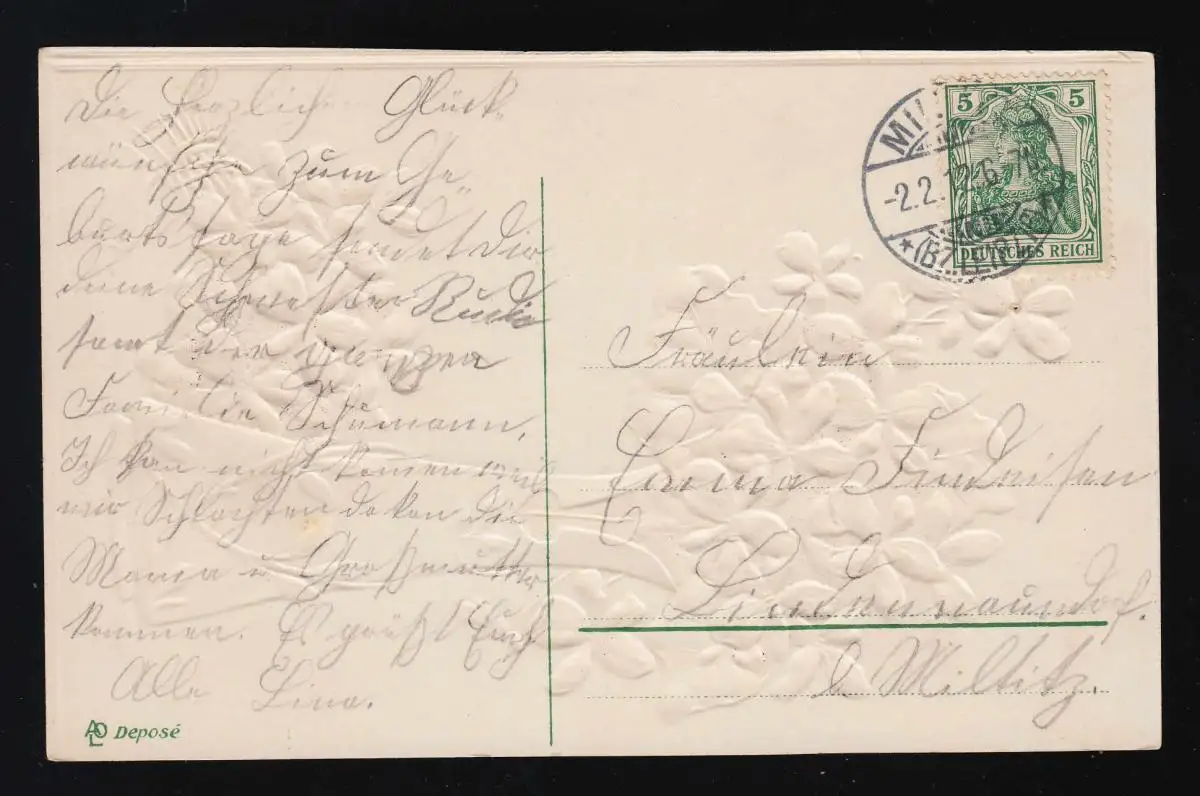 Die Herzlich Glück-
wünsche zum Ge-
burtstage sendet Dir
deine Schwester
samt der ganzen
Familie Schumann.
Ich kan nicht komen weil
wir Schlachten da kan die
Mama u Großmutter
kommen. Es grüßt Euch
Alle Lina.
ALD Deposé
5 5
MIL
-2.2.12.6-7N.
(BZ. LEIPZ
DEUTSCHES REICH
Fräulein
Emma Findeisen
Lindennaundorf.
b Miltitz.